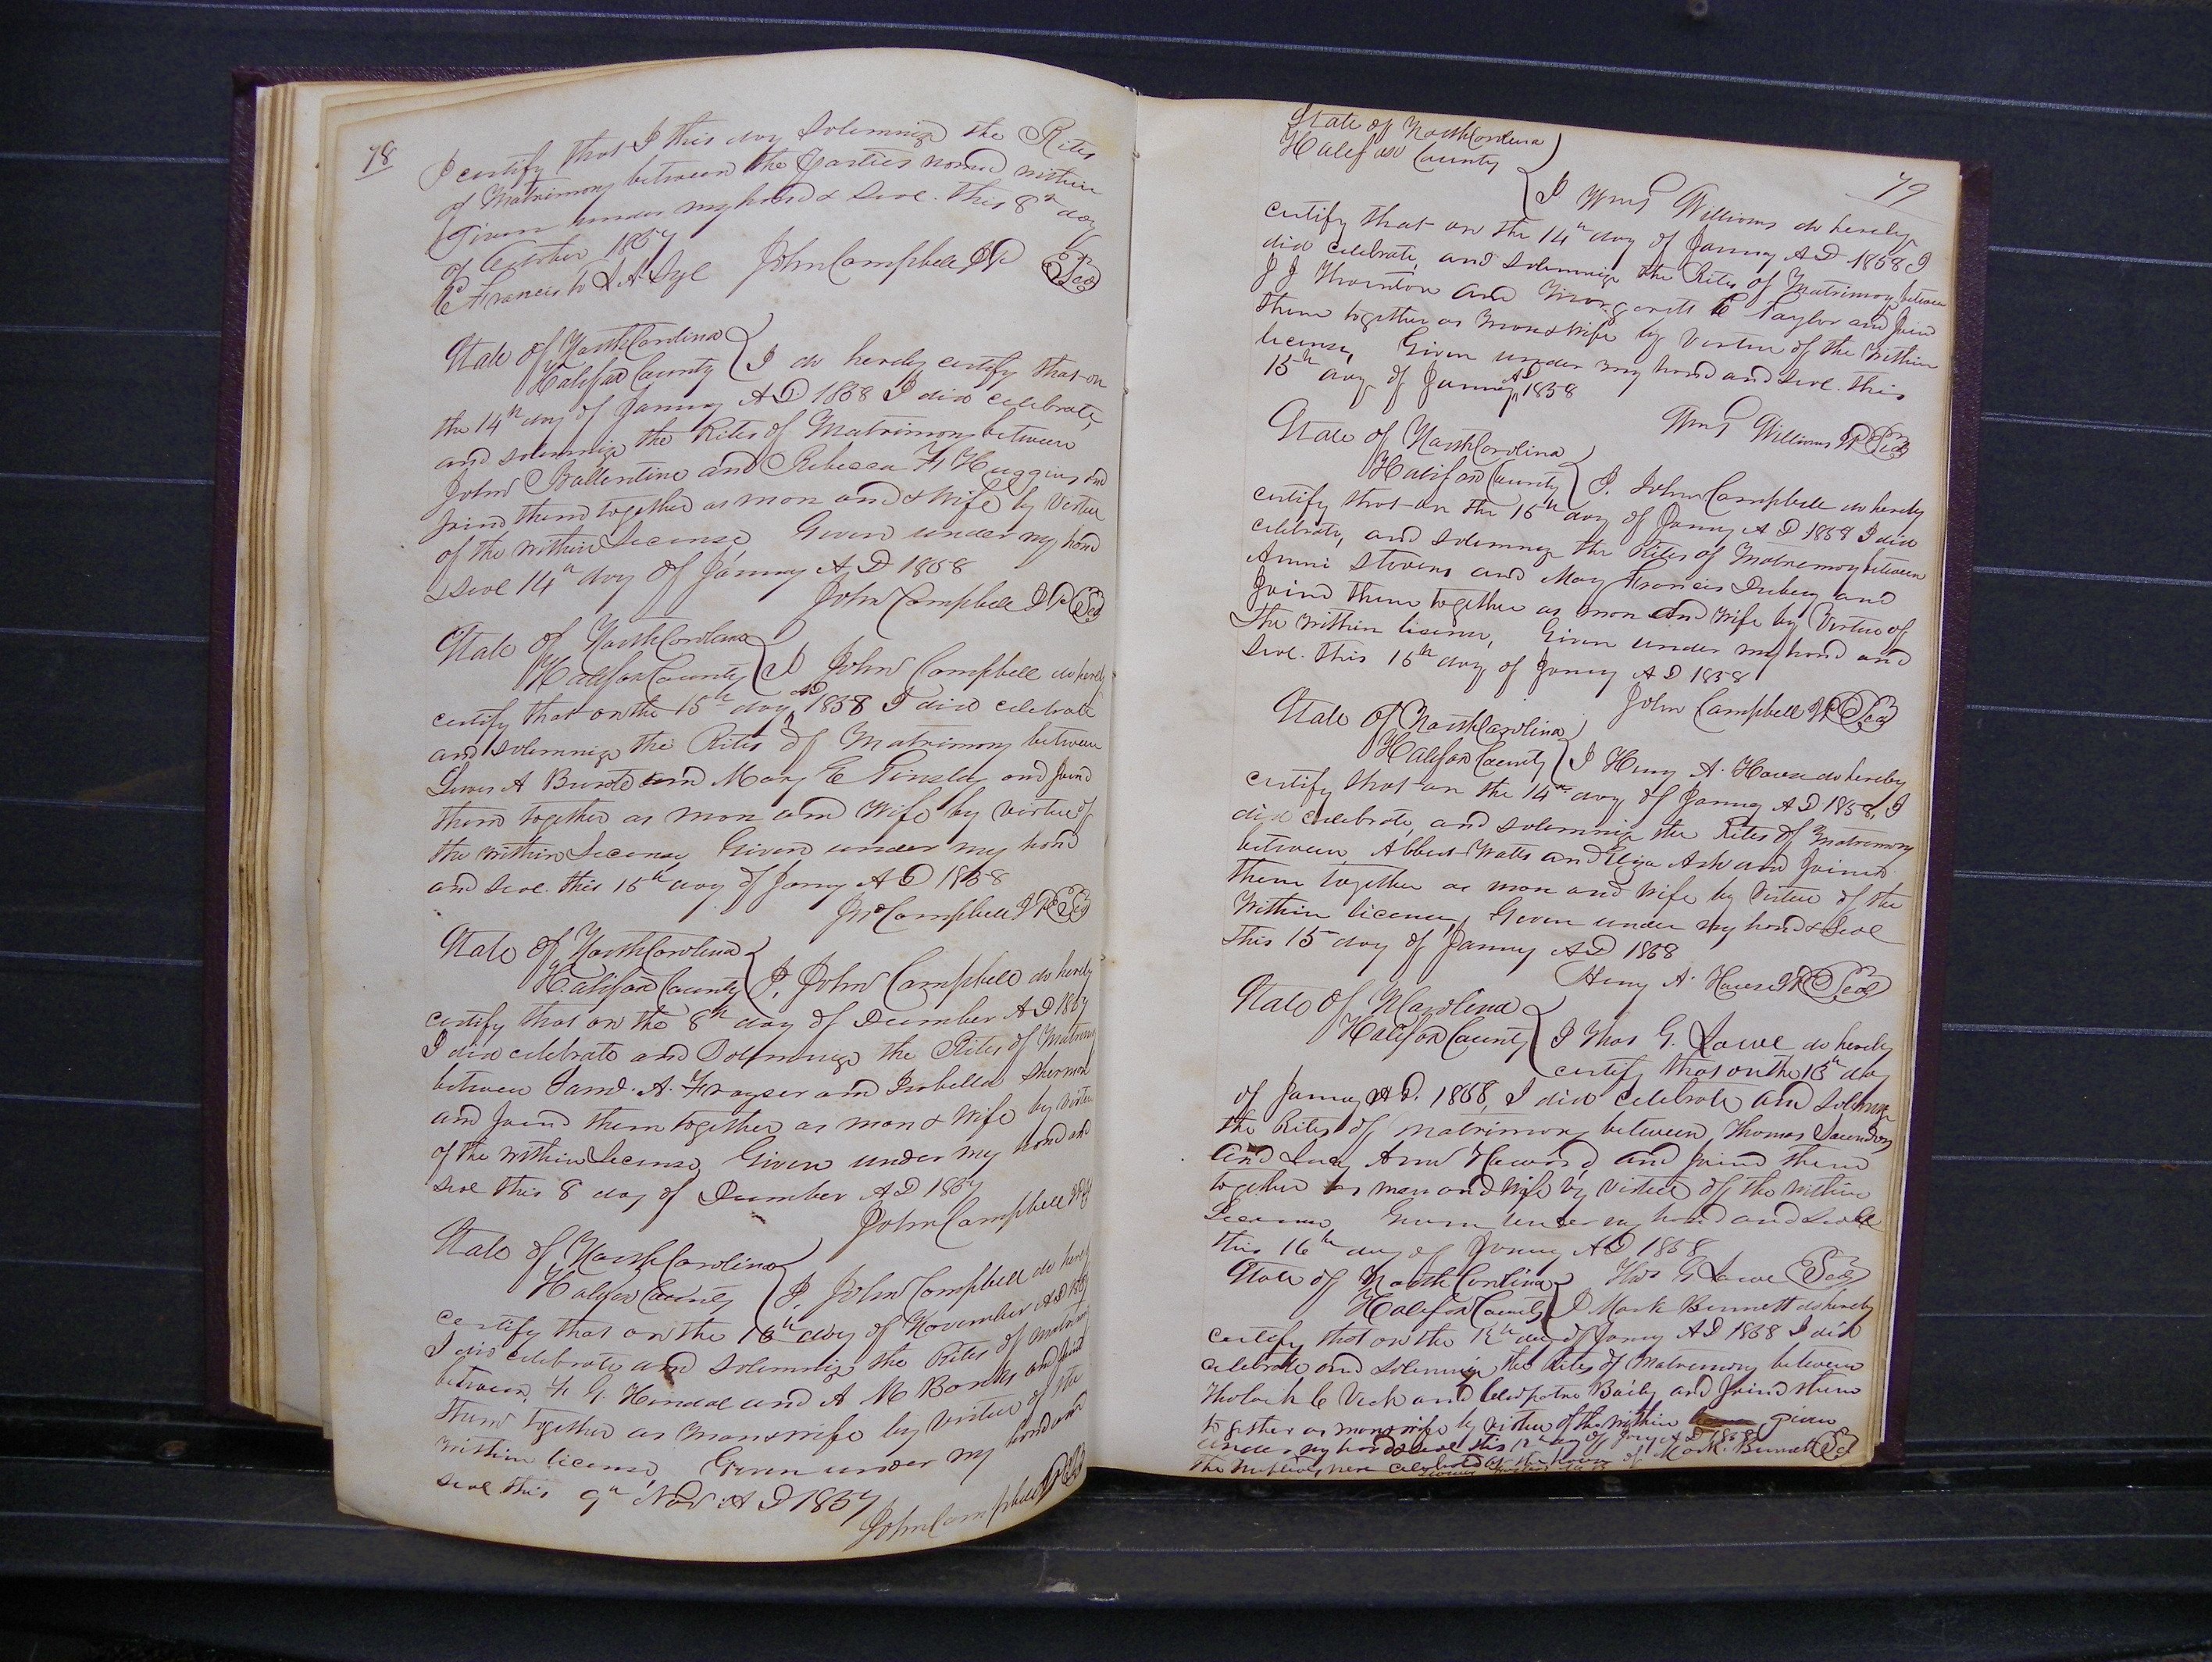 78
I certify that I this day Solemnize the Rites
of Matrimony between the Parties named within
Given under my hand & Seal. this 8th day
of October 1857
John Campbell JP Seal
E Francis to L A Dyl
State of North Carolina
Halifax County I do hereby certify that on
the 14th day of January AD 1858 I did celebrate,
and solemnize the Rites of Matrimony between
John Ballentine and Rebecca F Huggins and
joind them together as man and & wife by Virtue
of the within License Given under my hand
& Seal 14th day of January AD 1858
John Campbell JP Seal
State of North Carolina
Halifax County I John Campbell do hereby
certify that on the 15th day AD 1858 I did celebrate
and solemnize the Rites of Matrimony between
Lewis A and Mary E Tinsley and joind
them together as man and Wife by virtue of
the within License Given under my hand
and Seal. this 15th day of January AD 1858
Jno Campbell JP Seal
State of North Carolina
Halifax County I, John Campbell do hereby
certify that on the 8th day of December AD 1857
I did celebrate and Solemnize the Rites of Matrimony
between Saml. A. Frayser and Isabella Sherman
and joind them together as man & Wife by virtue
of the within License, Given under my hand and
Seal this 8 day of December AD 1857
John Campbell JP
State of North Carolina
Halifax County I, John Campbell do hereby
certify that on the day of November AD 1857
I did celebrate and solemnize the Rites of matrimony
between, F G. and A M Banks and joind
them together as man & wife by virtue of the
within license, Given under my hand and
Seal this 9th Nov. AD 1857
John Campbell JP Seal
79
State of North Carolina
Halifax County
I Wm Williams do hereby
certify that on the 14th day of January AD 1858 I
did celebrate, and solemnize the Rites of Matrimony between
J J Thornton and Margarett E Taylor and joind
them together as man & wife by Virtue of the within
license, Given under my hand and Seal. this
15th day of January AD 1858
Wm Williams JP Seal
State of North Carolina
Halifax County I. John Campbell do hereby
certify that on the 15th day of January AD 1858 I did
celebrate, and solemnize the Rites of Matrimony between
Stevens and Mary Francis and
joind them together as man and wife by Virtue of
the within license, Given under my hand and
Seal. this 15th day of January AD 1858
John Campbell JP Seal
State of North Carolina
Halifax County I Henry A. House do hereby
certify that on the 14th day of January AD 1858, I
did celebrate, and solemnize the Rites of Matrimony
between, Albert Watts and Eliza Ash and Joined
them together as man and wife by Virtue of the
Within license, Given under my hand & Seal
this 15 day of January AD 1858
Henry A. House JP Seal
State of N Carolina
Halifax County I Thos G. Lowe do hereby
certify that on the day
of January AD. 1858, I did celebrate and Solemnize
the Rites of matrimony between, Thomas Saunders
and Lucy Ann Heward, and joind them
together as man and wife by virtue of the within
License Given under my hand and Seal
this 16th day of January AD 1858
Thos G Lowe Seal
State of North Carolina
Halifax County I Mark Bennett do hereby
certify that on the day of January AD 1858 I did
celebrate and solemnize the Rites of Matrimony between
and Cleopatra Baily and joind them
together as man & wife by virtue of the within given
under my hand & Seal this day of Jany AD 1858
Mark. Bennett Seal
The Nuptials, were celebrated at the house of